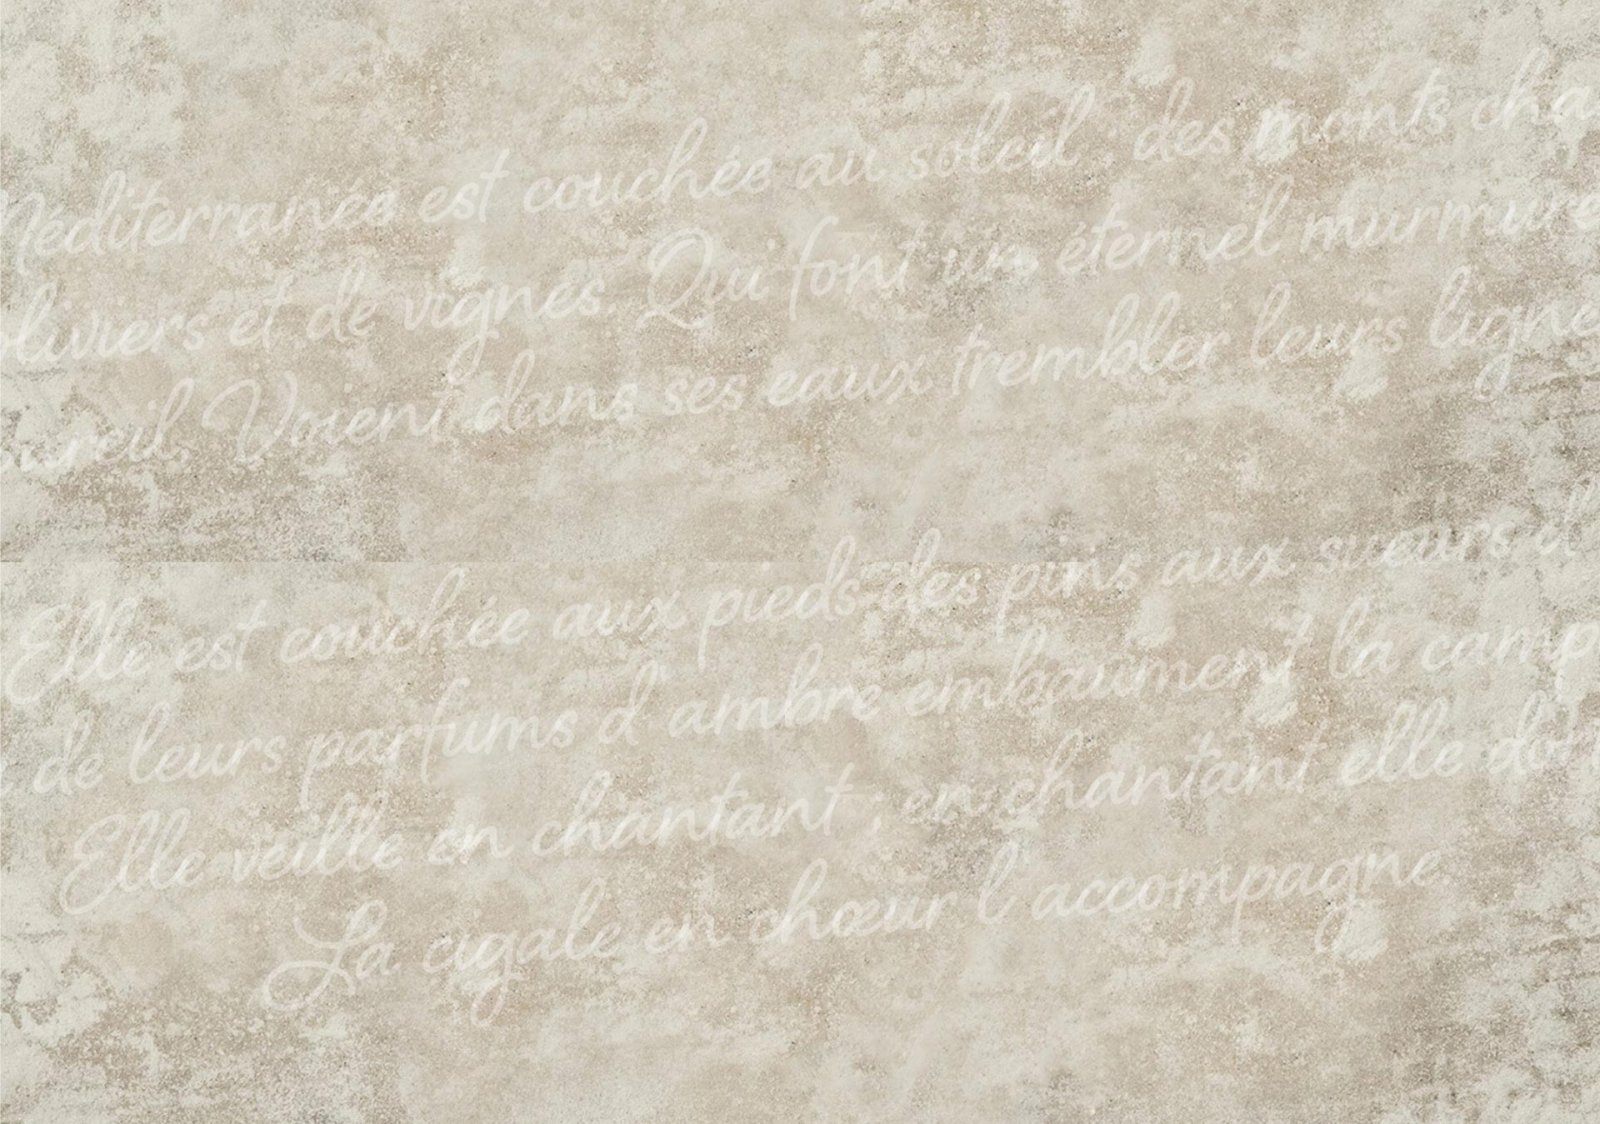 Méditerranée est couchée au soleil ; des monts cha
liviers et de vignes. Qui font un éternel murmure
ureil, Voient dans ses eaux trembler leurs ligne
Elle est couchée aux pieds des pins aux sueurs d'
de leurs parfums d'ambre embaument la camp
Elle veille en chantant ; en chantant elle do
La cigale en chœur l'accompagne